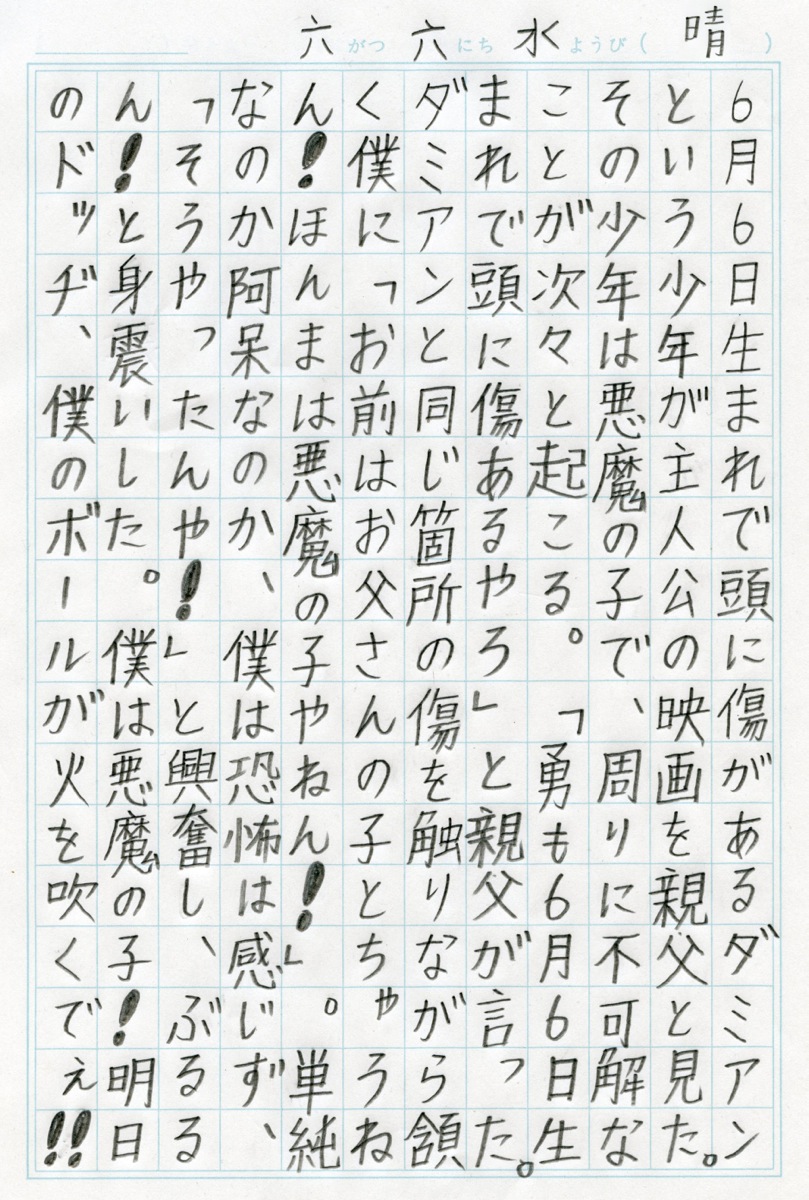 六がつ六にち水ようび(晴)
6月6日生まれで頭に傷があるダミアン
という少年が主人公の映画を親父と見た。
その少年は悪魔の子で、周りに不可解な
ことが次々と起こる。「勇も6月6日生
まれで頭に傷あるやろ」と親父が言った。
ダミアンと同じ箇所の傷を触りながら頷
く僕に「お前はお父さんの子とちゃうね
ん!ほんまは悪魔の子やねん!」。単純
なのか阿呆なのか、僕は恐怖は感じず、
「そうやったんや!」と興奮し、ぶるる
ん!と身震いした。僕は悪魔の子!明日
のドッヂ、僕のボールが火を吹くでぇ!!